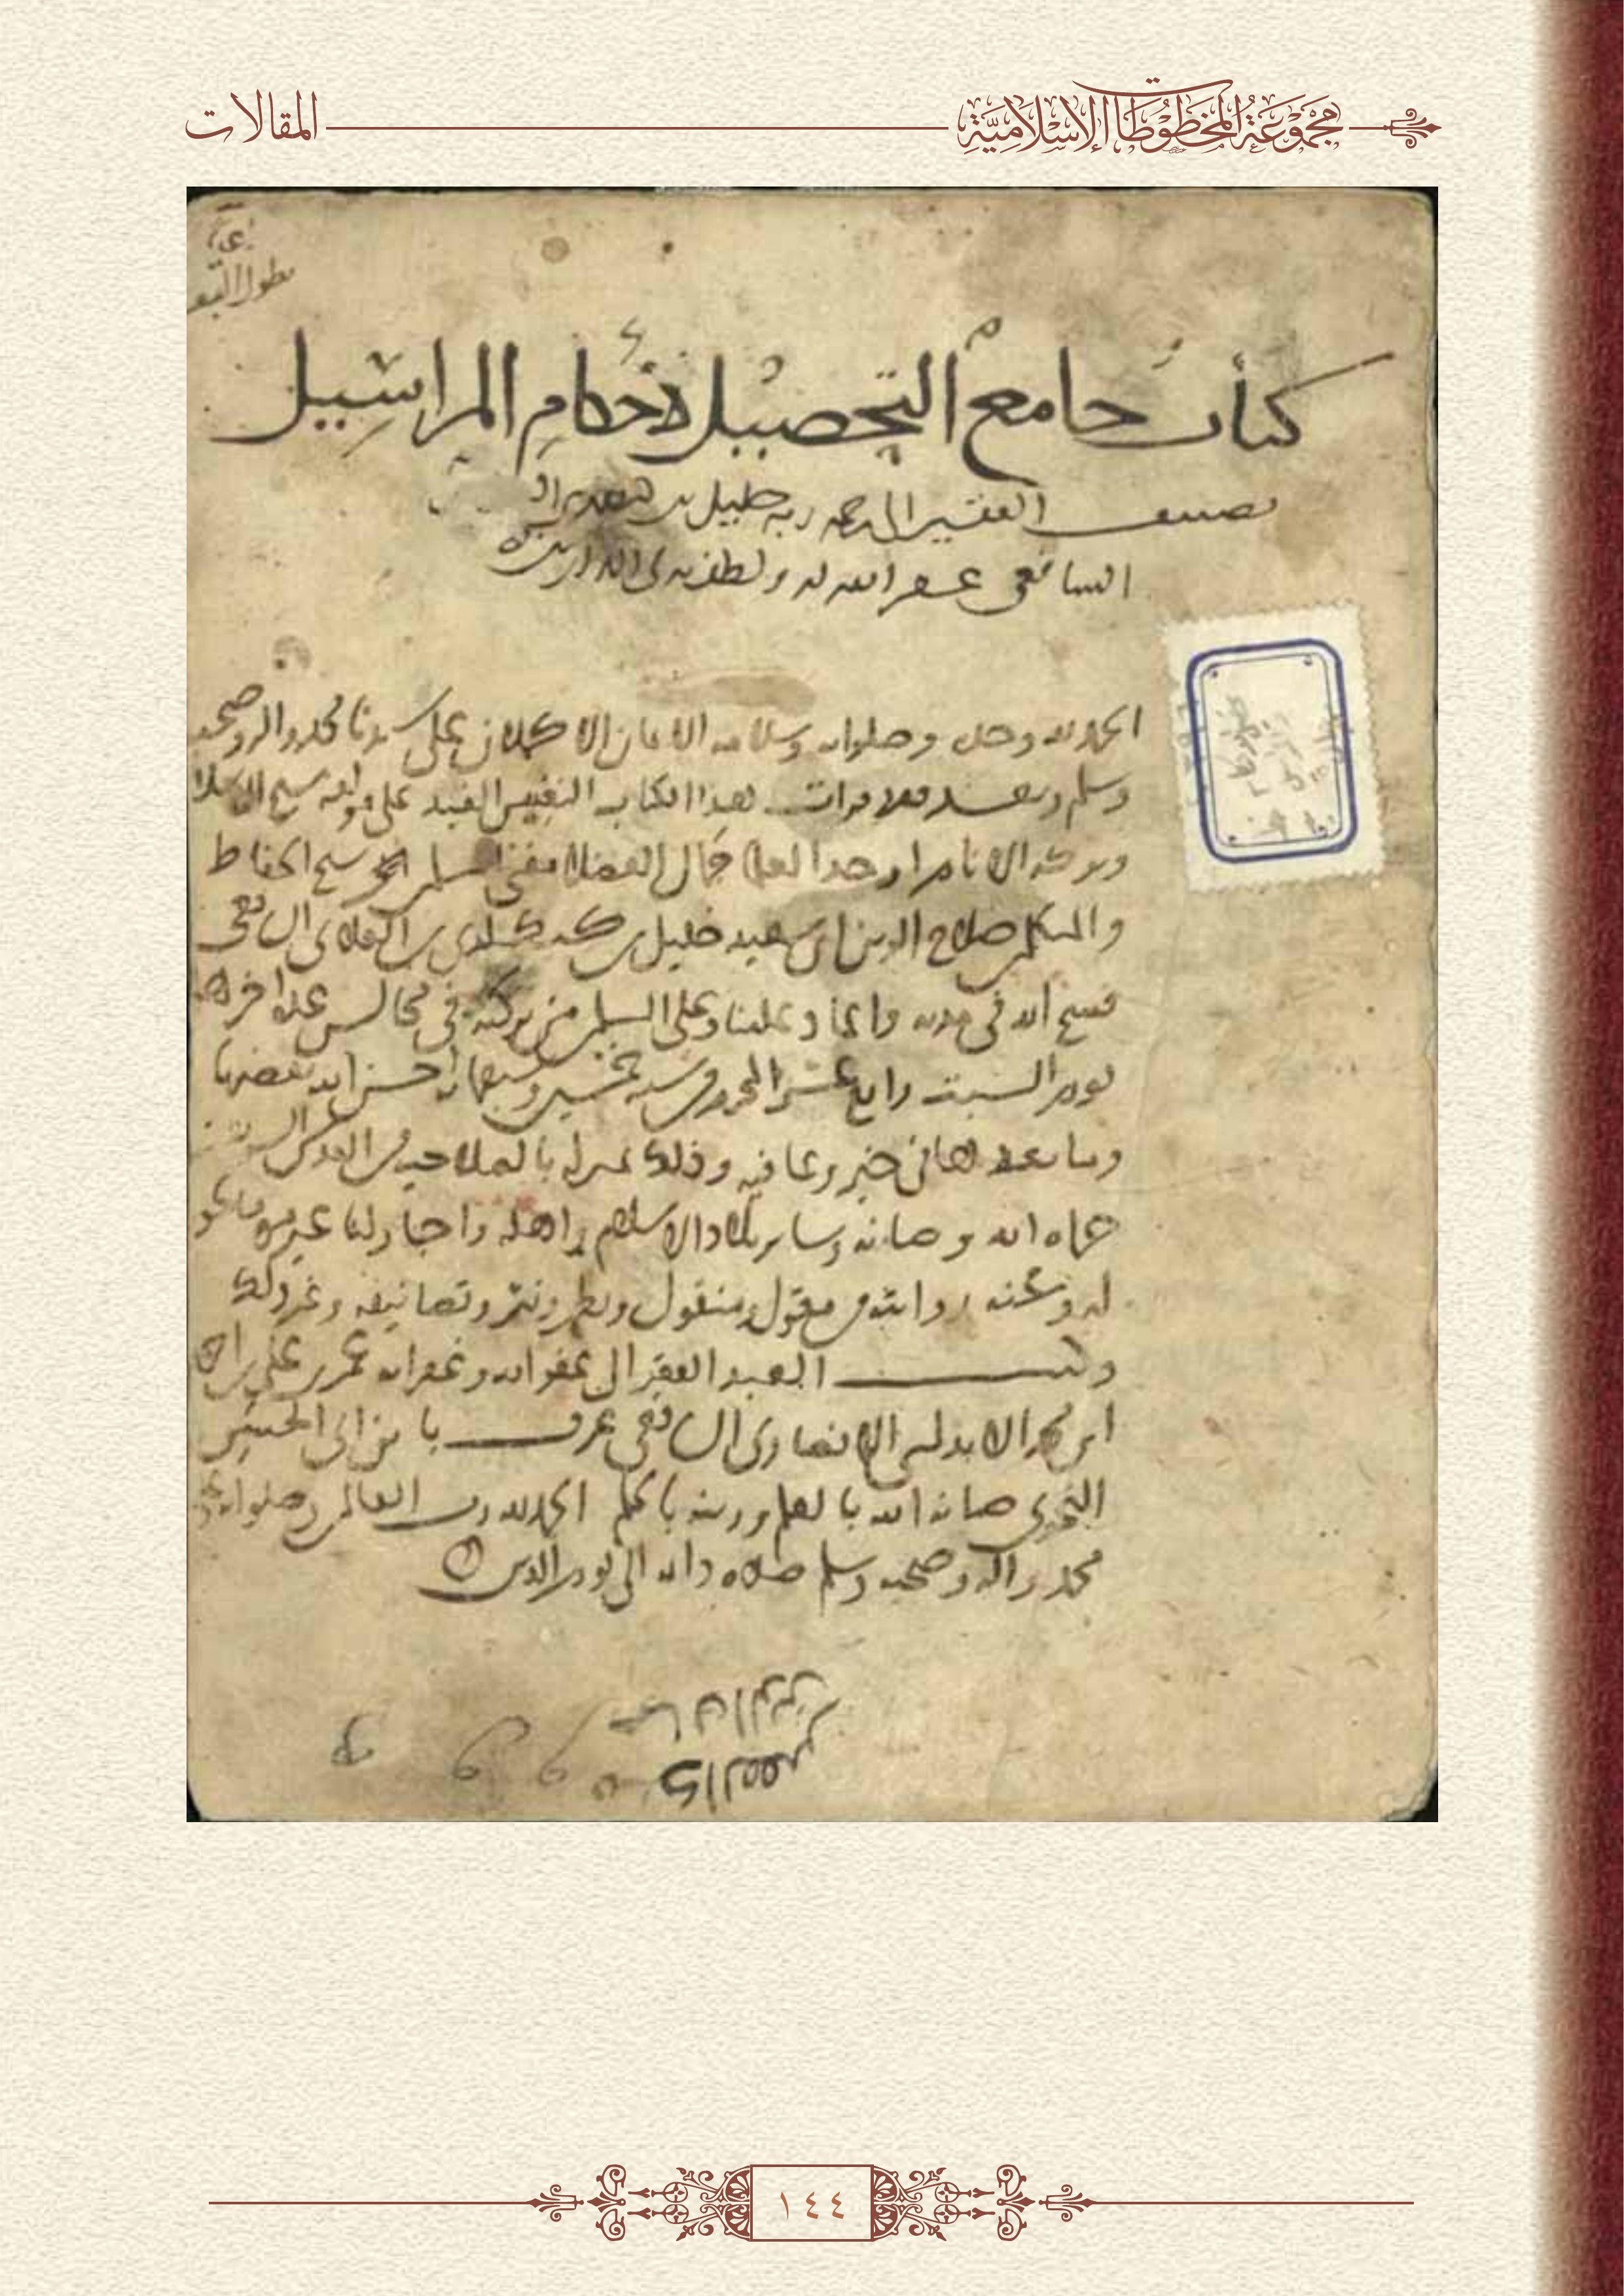 مجموعة المخطوطات الإسلامية
المقالات
كتاب جامع التحصيل لأحكام المراسيل
تصنيف الفقير إلى رحمة ربه خليل بن
الشافعي غفر الله له ولطف به في الدارين
الحمد لله وحده وصلواته وسلامه الاتمان الاكملان على سيدنا محمد واله وصحبه
وسلم وبعد فقد قرات هذا الكتاب النفيس المفيد على مولفه شيخ الاسلام
وبركة الانام اوحد العلما جمال الفضلا مفتي المسلمين شيخ الحفاظ
والمتكلمين صلاح الدين ابي سعيد خليل بن كيكلدي بن العلاي الشافعي
فسح الله في مدته واعاد علينا وعلى المسلمين من بركته في مجالس عدة اخرها
يوم السبت رابع عشر المحرم سنة خمسين وسبعماية احسن الله تقضيها
وما بعدها في خير وعافية وذلك بمنزله بالصلاحية من القدس الشريف
حماه الله وصانه وساير بلاد الاسلام واهله واجاز لنا غير مرة ما يجوز
له وعنه روايته من مقول ومنقول ونظم ونثر وتصانيفه وغير ذلك
وكتب العبد الفقير الى عفو الله وغفرانه عمر بن علي بن احمد
ابن محمد الاندلسي الانصاري الشافعي عرف بابن ابي الحسن
النحوي صانه الله بالعلم وزينه بالحلم الحمد لله رب العالمين وصلواته على
محمد واله وصحبه وسلم صلاة دايمة الى يوم الدين
١٤٤